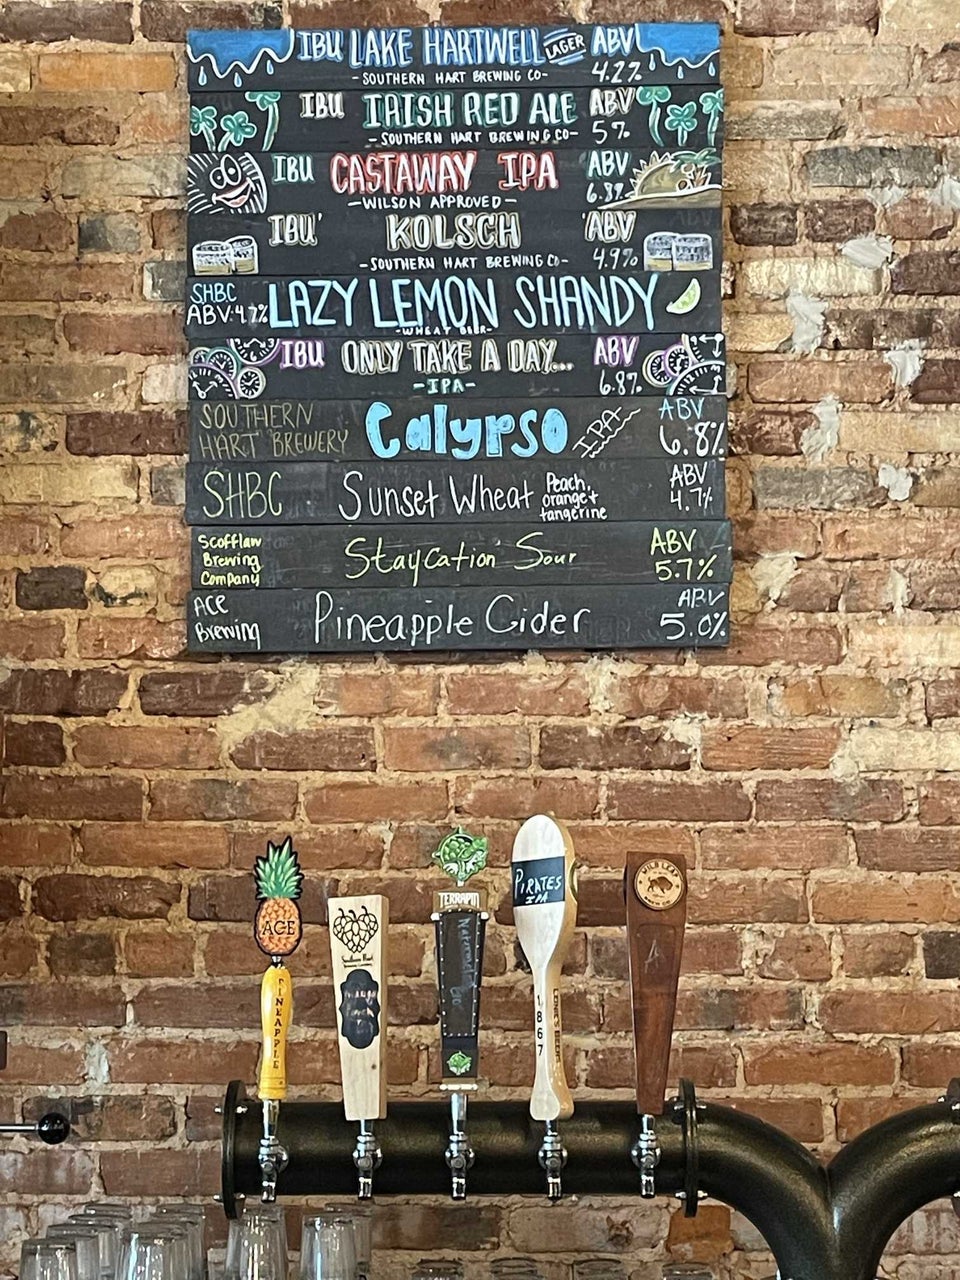 IBU LAKE HARTWELL LAGER ABV
-SOUTHERN HART BREWING CO- 4.2%
IBU IRISH RED ALE ABV
-SOUTHERN HART BREWING CO- 5%
IBU CASTAWAY IPA ABV
-WILSON APPROVED- 6.8%
IBU KOLSCH ABV
-SOUTHERN HART BREWING CO- 4.9%
SHBC
ABV 4.7% LAZY LEMON SHANDY
-WHEAT BEER-
IBU ONLY TAKE A DAY... ABV
-IPA- 6.8%
SOUTHERN
HART BREWERY Calypso IPA ABV
6.8%
SHBC Sunset Wheat Peach,
orange+
tangerine ABV
4.7%
Scofflaw
Brewing
Company Staycation Sour ABV
5.7%
ACE
Brewing Pineapple Cider ABV
5.0%
ACE
PINEAPPLE
Southern Hart
TERRAPIN
PIRATES
IPA
1867
WILD LEAP
A